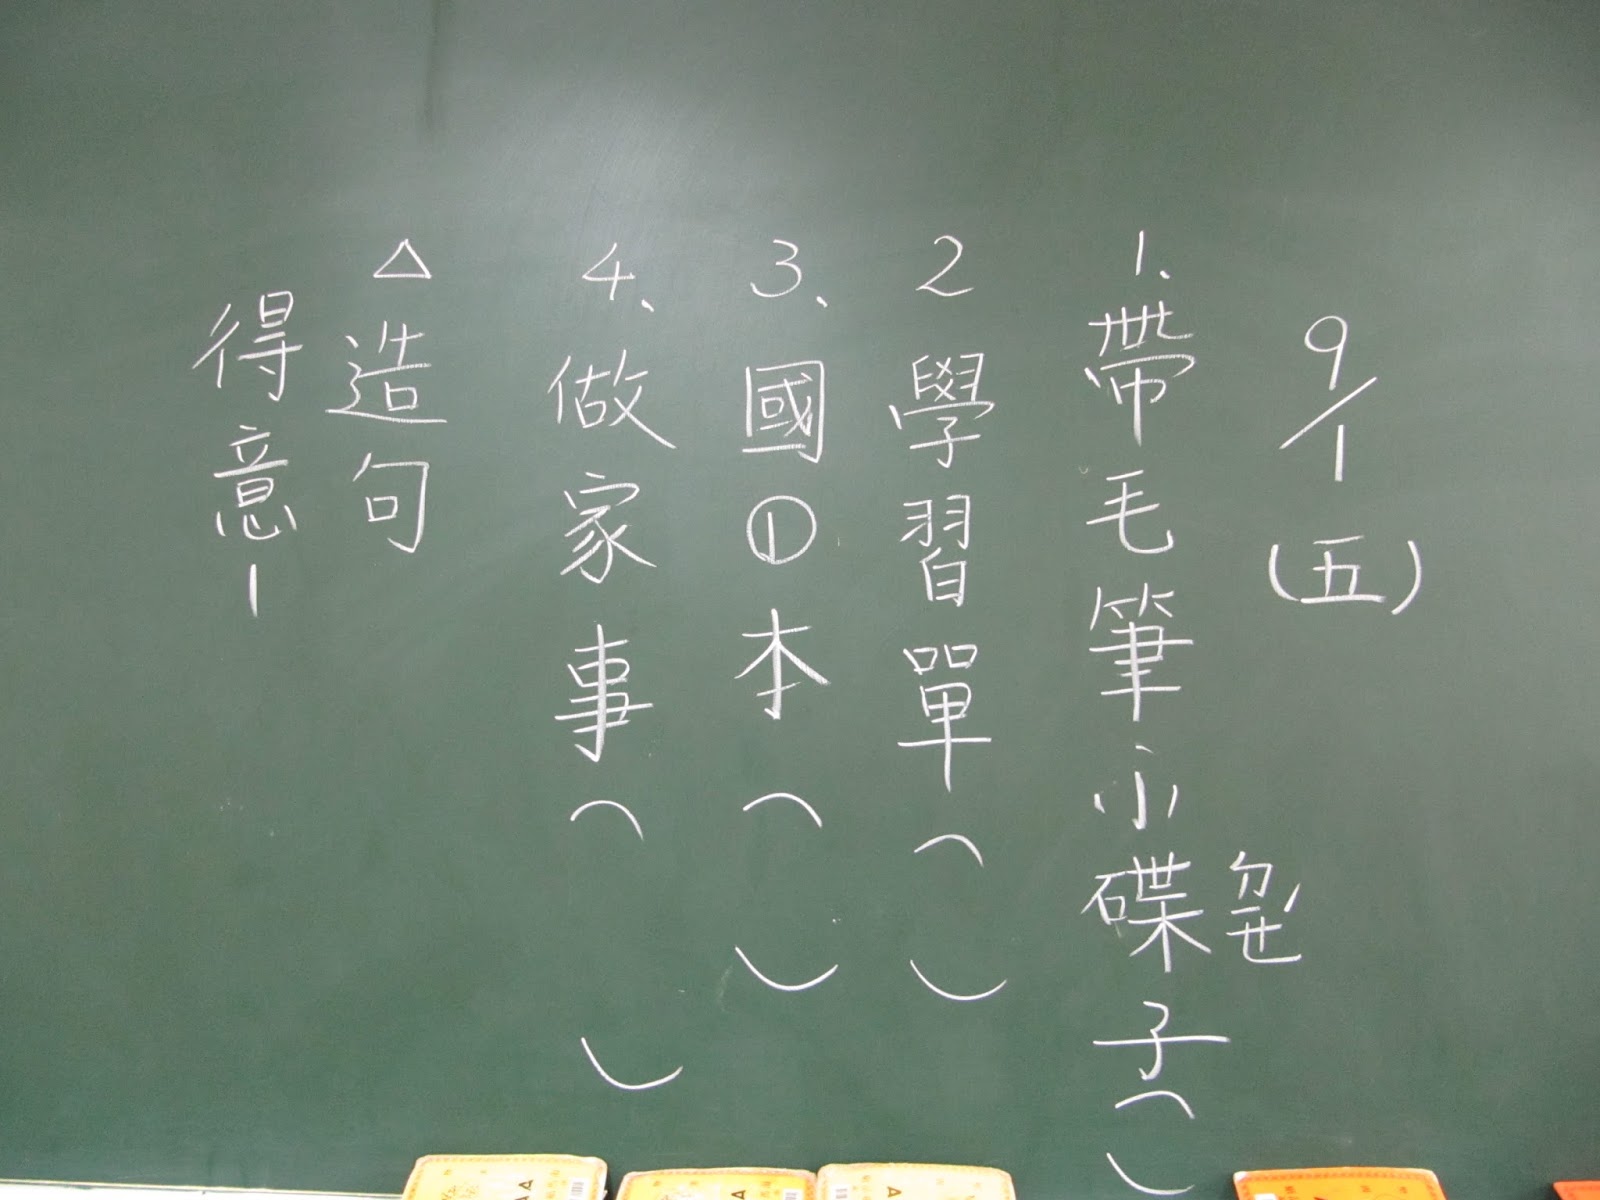 9/1(五)
1、帶毛筆小碟ㄉㄧㄝˊ子( )
2 學習單( )
3、國①本( )
4、做家事( )
△造句
得意—